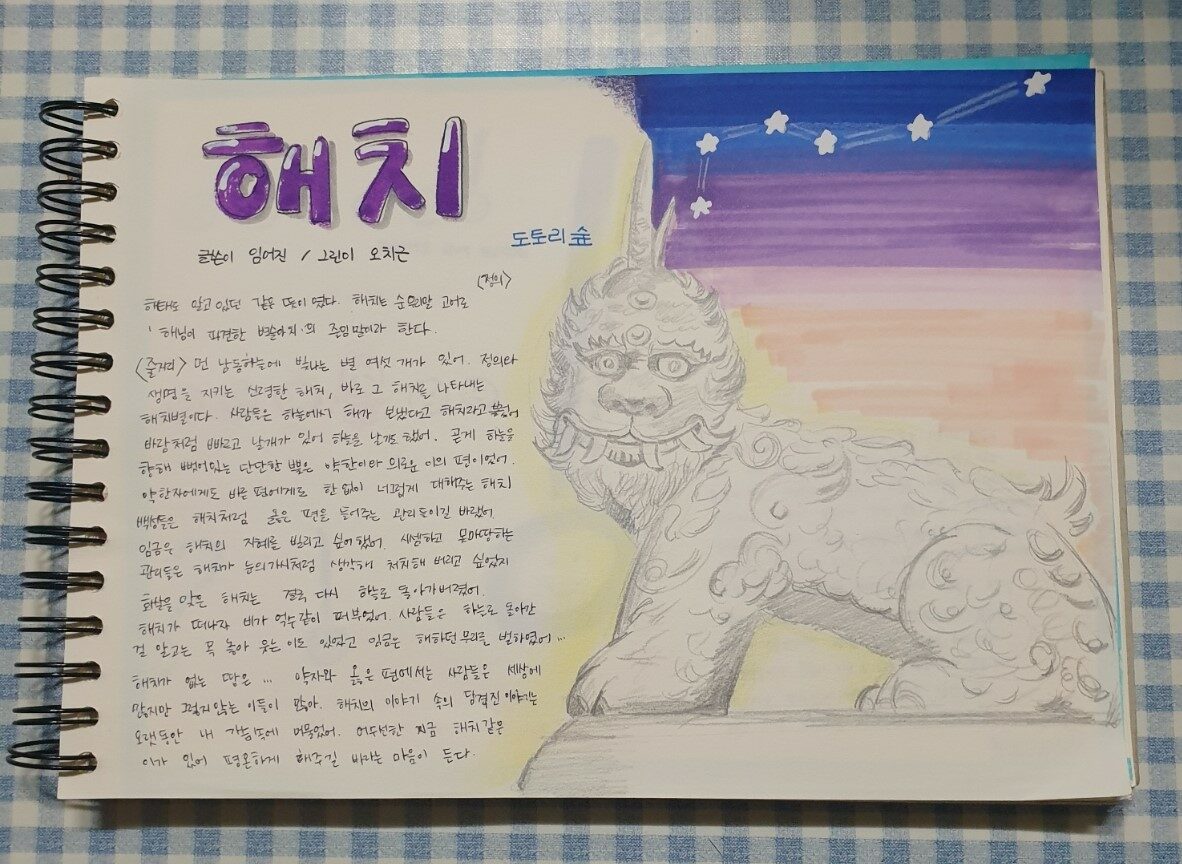 해치
글쓴이 임어진 / 그린이 오치근
도토리숲
<정의>
해태로 알고 있던 같은 뜻이 였다. 해치는 순우리말 고어로
'해님이 파견한 벼슬아치'의 준임말이라 한다.
<줄거리> 먼 남동하늘에 빛나는 별 여섯 개가 있어. 정의와
생명을 지키는 신령한 해치, 바로 그 해치를 나타내는
해치별이다. 사람들은 하늘에서 해가 보냈다고 해치라고 불렀어
바람처럼 빠르고 날개가 있어 하늘을 날기도 했어. 곧게 하늘을
향해 뻗어있는 단단한 뿔은 약한이와 의로운 이의 편이었어.
약한자에게도 바른 편에게도 한 없이 너그럽게 대해주는 해치
백성들은 해치처럼 옳은 편을 들어주는 관리들이길 바랬어
임금은 해치의 지혜를 빌리고 싶어했어. 시샘하고 못마땅하는
관리들은 해치가 눈의가시처럼 생각해 처치해 버리고 싶었지
화살을 맞은 해치는 결국 다시 하늘로 돌아가버렸어.
해치가 떠나자 비가 억수같이 퍼부었어. 사람들은 하늘로 돌아간
걸 알고는 목 놓아 웃는 이도 있었고 임금은 해하던 무리를 벌하였어...
해치가 없는 땅은... 약자와 옳은 편에서는 사람들은 세상에
많지만 그렇지않는 이들이 많아. 해치의 이야기 속의 담겨진 이야기는
오랫동안 내 가슴속에 머물었어. 어수선한 지금 해치같은
이가 있어 평온하게 해주길 바라는 마음이 든다.